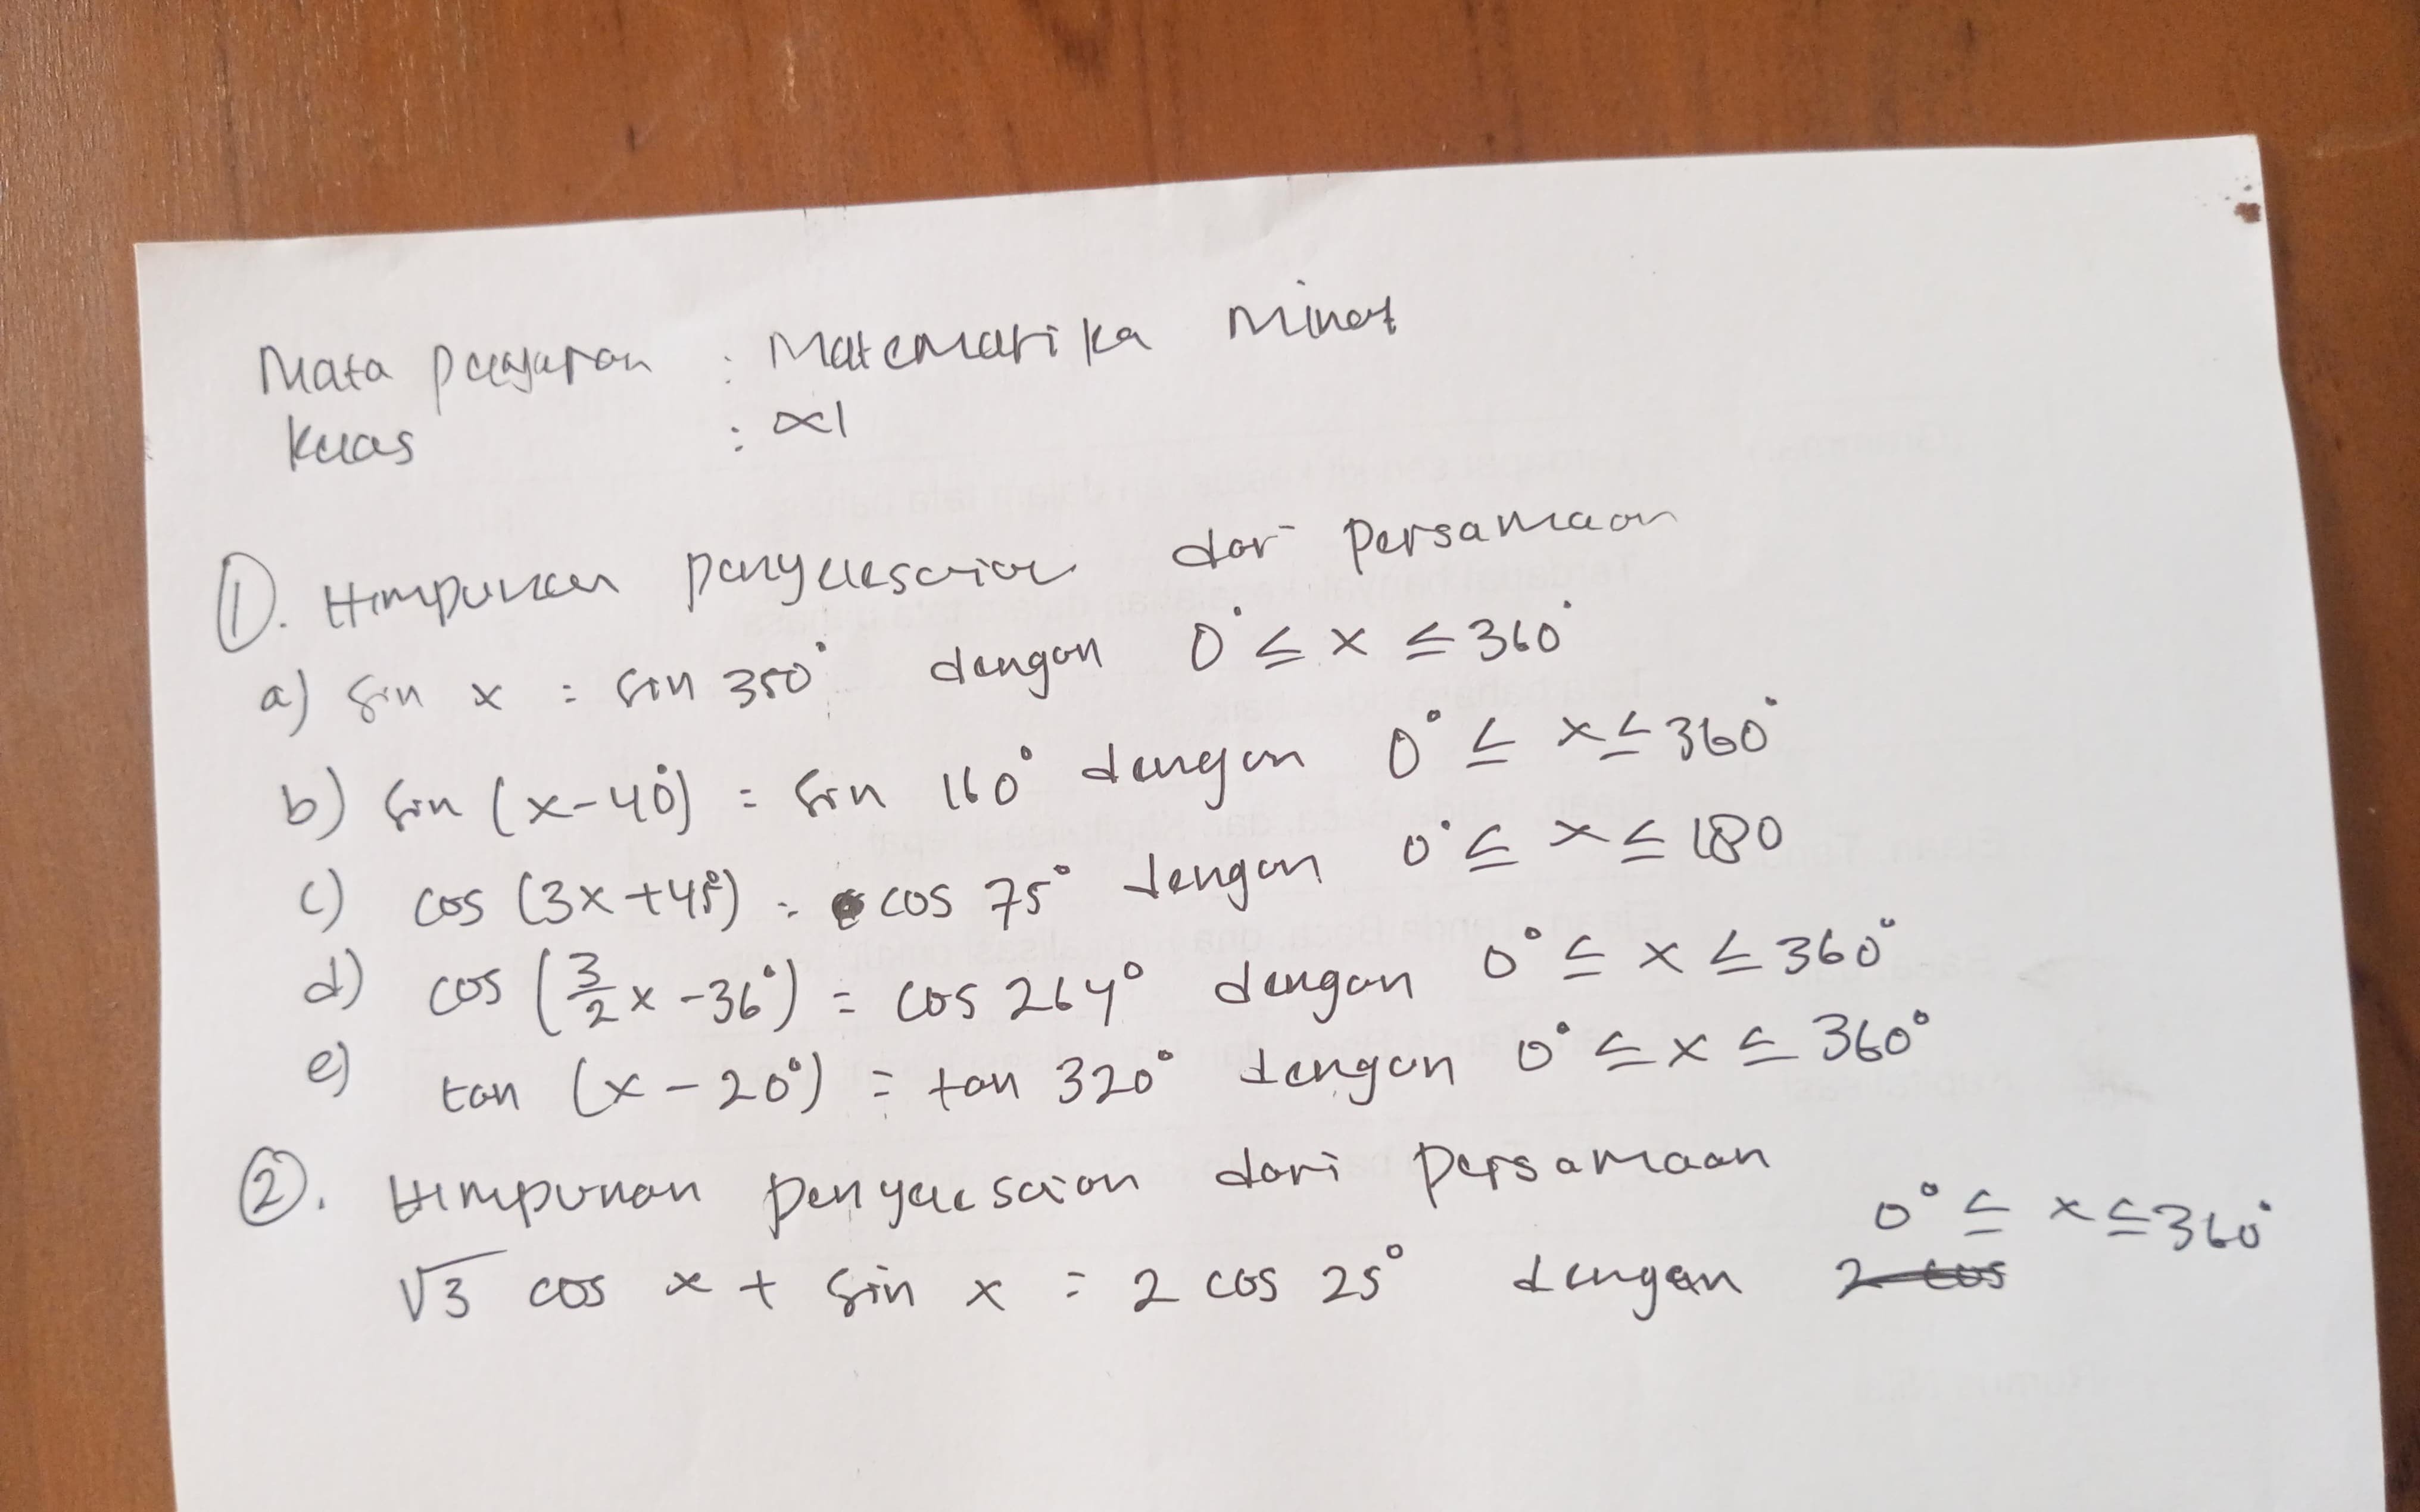 Mata pelajaran : Matematika Minat
Kelas : XI
1. Himpunan penyelesaian dari persamaan
a) sin x = sin 350° dengan 0° ≤ x ≤ 360°
b) sin (x-40°) = sin 160° dengan 0° ≤ x ≤ 360°
c) cos (3x+45°) = cos 75° dengan 0° ≤ x ≤ 180
d) cos (3/2 x - 36°) = cos 264° dengan 0° ≤ x ≤ 360°
e) tan (x - 20°) = tan 320° dengan 0° ≤ x ≤ 360°
2. Himpunan penyelesaian dari persamaan
√3 cos x + sin x = 2 cos 25° dengan 0° ≤ x ≤ 360°